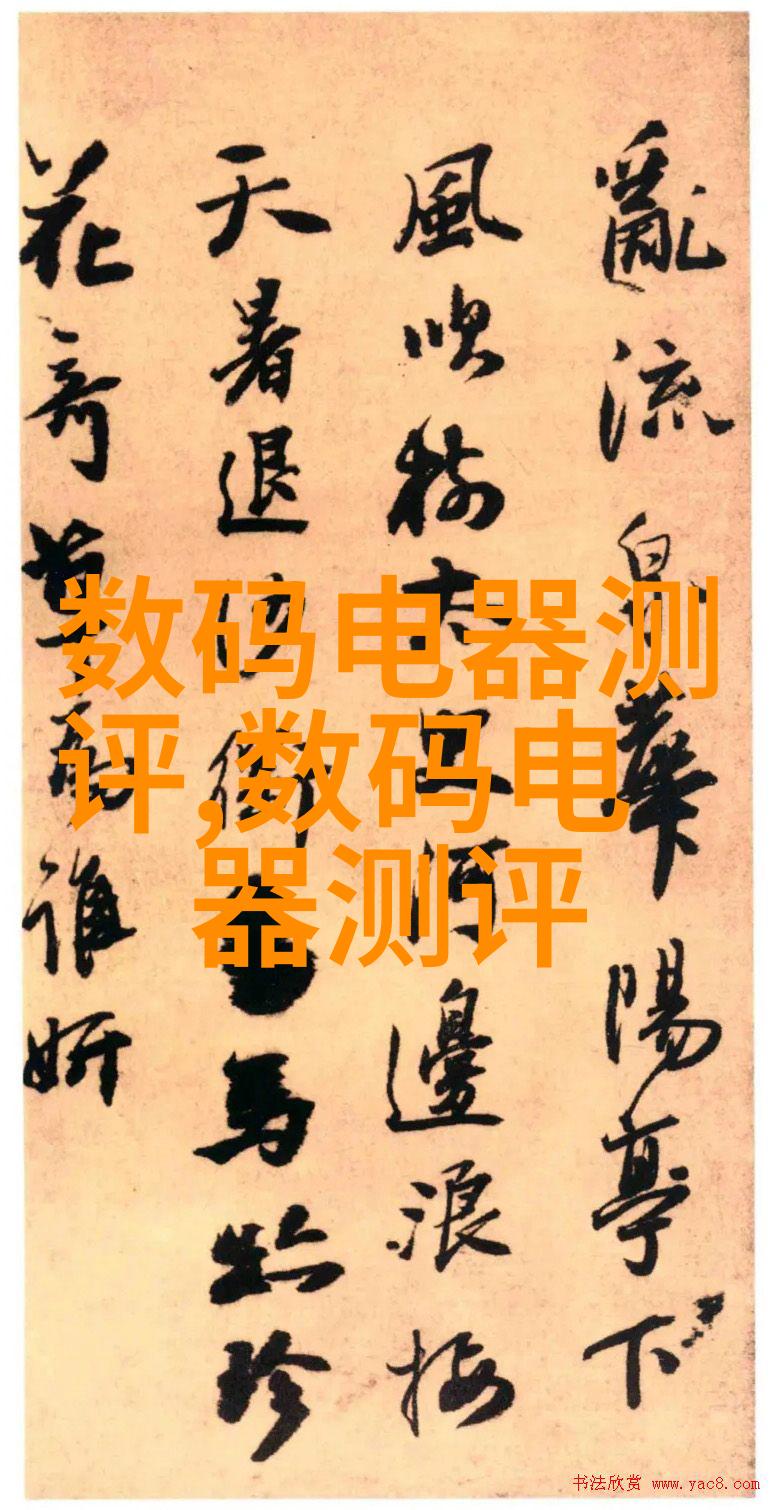 亂流 華陽亭下
風吹 河邊浪接
天暑退 馬 珍
花奇草 誰妍
数码电器测
评,数码电
器测评
书法欣赏 www.yac8.com